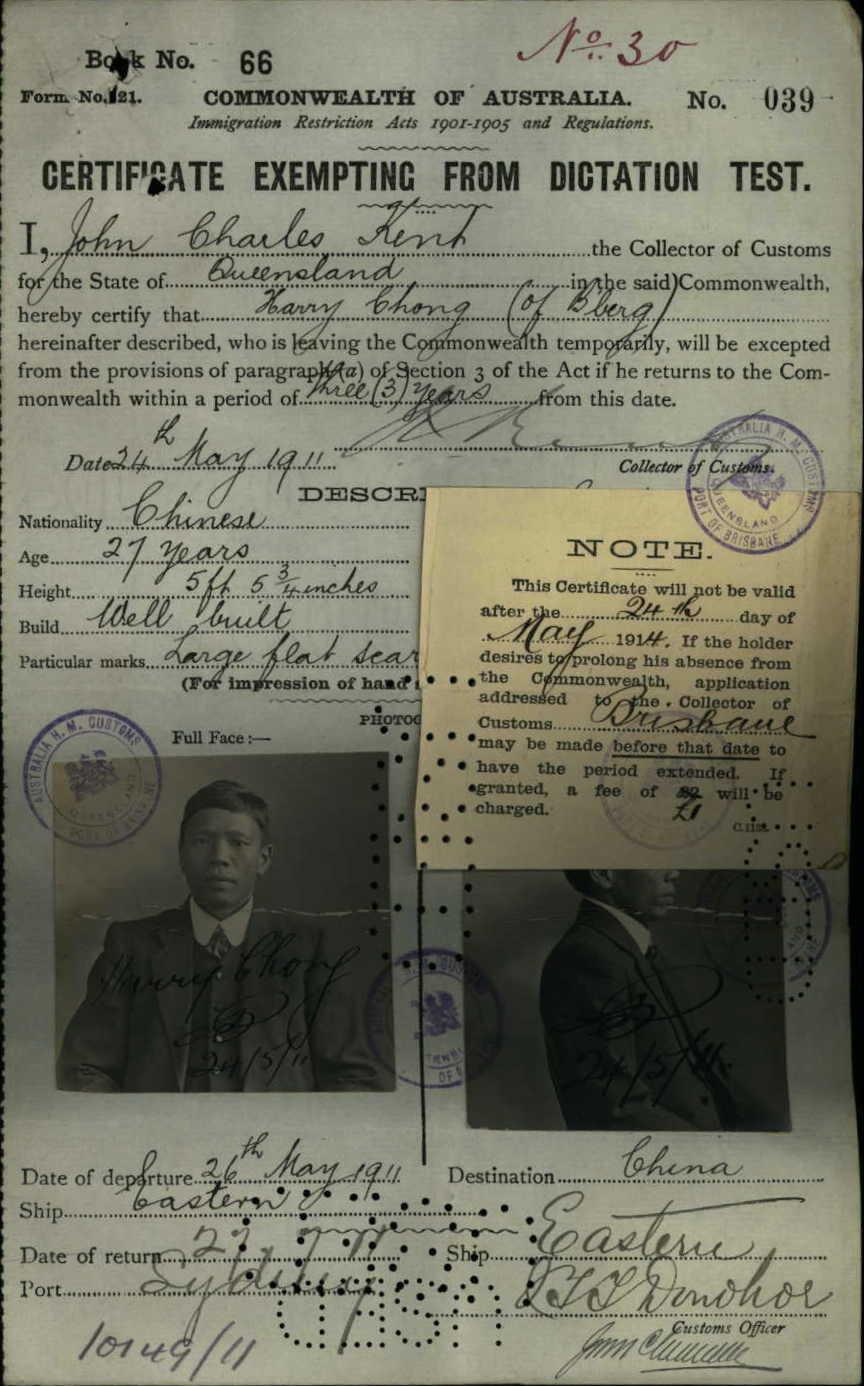 Book No. 66
No. 30
Form No. 121.
COMMONWEALTH OF AUSTRALIA.
No. 039
Immigration Restriction Acts 1901-1905 and Regulations.
CERTIFICATE EXEMPTING FROM DICTATION TEST.
I, John Charles Kent the Collector of Customs
for the State of Queensland in the said Commonwealth,
hereby certify that Harry Chong (of Bberg)
hereinafter described, who is leaving the Commonwealth temporarily, will be excepted
from the provisions of paragraph (a) of Section 3 of the Act if he returns to the Com-
monwealth within a period of three (3) years from this date.
Date 24th May 1911.
Collector of Customs.
DESCRI
Nationality Chinese
Age 27 years
Height 5ft 5 3/4 inches
Build Well built
Particular marks Large flat scar
(For impression of hand
PHOTOG
Full Face:—
NOTE.
This Certificate will not be valid
after the 24th day of
May 1914. If the holder
desires to prolong his absence from
the Commonwealth, application
addressed to the Collector of
Customs Brisbane
may be made before that date to
have the period extended. If
granted, a fee of will be
£1
charged.
AUSTRALIA H. M. CUSTOMS
QUEENSLAND
PORT OF BRISBANE
Harry Chong
24/5/11
24/5/11
Date of departure 26th May 1911
Destination China
Ship Eastern
Date of return 27. 7. 11
Ship Eastern
Port Sydney
Customs Officer
10149/11